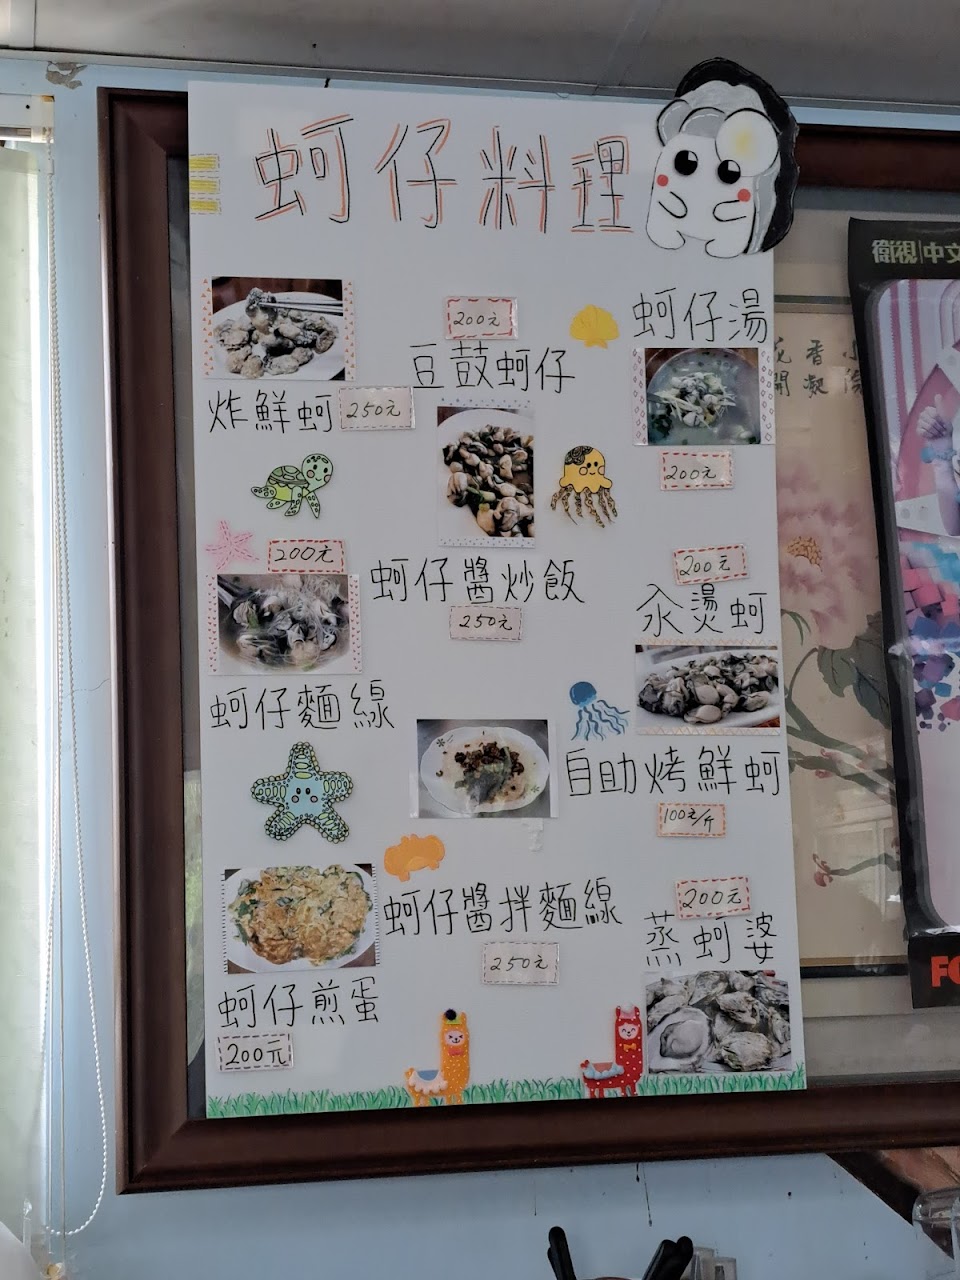 蚵仔料理
炸鮮蚵 250元
200元
豆鼓蚵仔
蚵仔湯
200元
200元
蚵仔麵線
蚵仔醬炒飯
250元
200元
汆燙蚵
自助烤鮮蚵
100元/斤
蚵仔煎蛋
200元
蚵仔醬拌麵線
250元
200元
蒸蚵婆
衛視中文
花香小
開凝